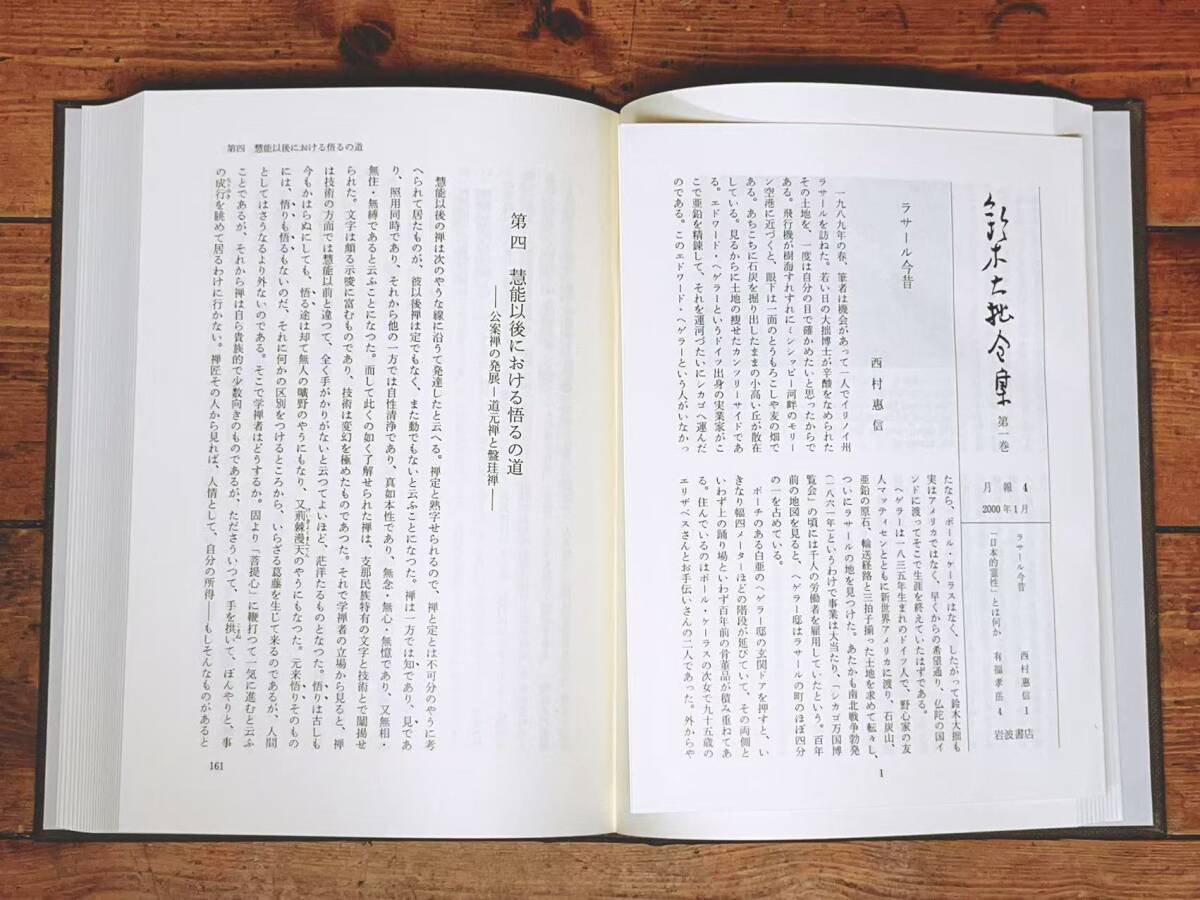 鈴木大拙全集
第一巻
月報 4
2000年1月
ラサール今昔 西村惠信 1
「日本的霊性」とは何か 有福孝岳 4
岩波書店
ラサール今昔
西村惠信
一九八九年の春、筆者は機会があって一人でイリノイ州
ラサールを訪ねた。若い日の大拙博士が辛酸をなめられた
その土地を、一度は自分の目で確かめたいと思ったからで
ある。飛行機が樹海すれすれにミシシッピー河畔のモリー
ン空港に近づくと、眼下は一面のとうもろこしや麦の畑で
ある。あちこちに石炭を掘り出したままの小高い丘が散在
している。見るからに土地の痩せたカンツリーサイドであ
る。エドワード・ヘゲラーというドイツ出身の実業家がこ
こで亜鉛を精錬して、それを運河づたいにシカゴへ運んだ
のである。このエドワード・ヘゲラーという人がいなかっ
たなら、ポール・ケーラスはなく、したがって鈴木大拙も
実はアメリカではなく、早くからの希望通り、仏陀の国イ
ンドに渡ってそこで生涯を終えていたはずである。
ヘゲラーは一八三五年生まれのドイツ人で、野心家の友
人マッティセンとともに新世界アメリカに渡り、石炭山、
亜鉛の原石、輸送経路と三拍子揃った土地を求めて転々し、
ついにラサールの地を見つけた。あたかも南北戦争勃発
(一八六一年)というわけで事業は大当たり、「シカゴ万国博
覧会」の頃には千人の労働者を雇用していたという。百年
前の地図を見ると、ヘゲラー邸はラサールの町のほぼ四分
の一を占めている。
ポーチのある白亜のヘゲラー邸の玄関ドアを押すと、い
きなり幅四メーターほどの階段が延びていて、その両側と
いわず上の踊り場といわず百年前の骨董品が積み重ねてあ
る。住んでいるのはポール・ケーラスの次女で九十五歳の
エリザベスさんとお手伝いさんの二人であった。外からや
1
第四 慧能以後における悟るの道
第四 慧能以後における悟るの道
——公案禅の発展—道元禅と盤珪禅——
慧能以後の禅は次のやうな線に沿うて発達したと云へる。禅定と熟字せられるので、禅と定とは不可分のやうに考
へられて居たものが、彼以後禅は定でもなく、また動でもないと云ふことになつた。禅は一方では知であり、見であ
り、照用同時であり、それから他の一方では自性清浄であり、真如本性であり、無念・無心・無憶であり、又無相・
無住・無縛であると云ふことになつた。而して此くの如く了解せられた禅は、支那民族特有の文字と技術とで闡揚せ
られた。文字は頗る示唆に富むものであり、技術は変幻を極めたものであつた。それで学禅者の立場から見ると、禅
は技術の方面では慧能以前と違つて、全く手がかりがないと云つてよいほど、茫洋たるものとなつた。悟りは古しも
今もかはらぬにしても、悟る途は却て無人の曠野のやうにもなり、又荊棘漫天のやうにもなつた。元来悟りそのもの
には、悟りも悟るもないのだ、それに何かの区別をつけるところから、いらざる葛藤を生じて来るのであるが、人間
としてはさうなるより外ないのである。そこで学禅者はどうするか。固より「菩提心」に鞭打つて一気に進むと云ふ
ことであるが、それから禅は自ら貴族的で少数向きのものであるが、たださういつて、手を拱いて、ぼんやりと、事
の成行を眺めて居るわけに行かない。禅匠その人から見れば、人情として、自分の所得——もしそんなものがあると
161